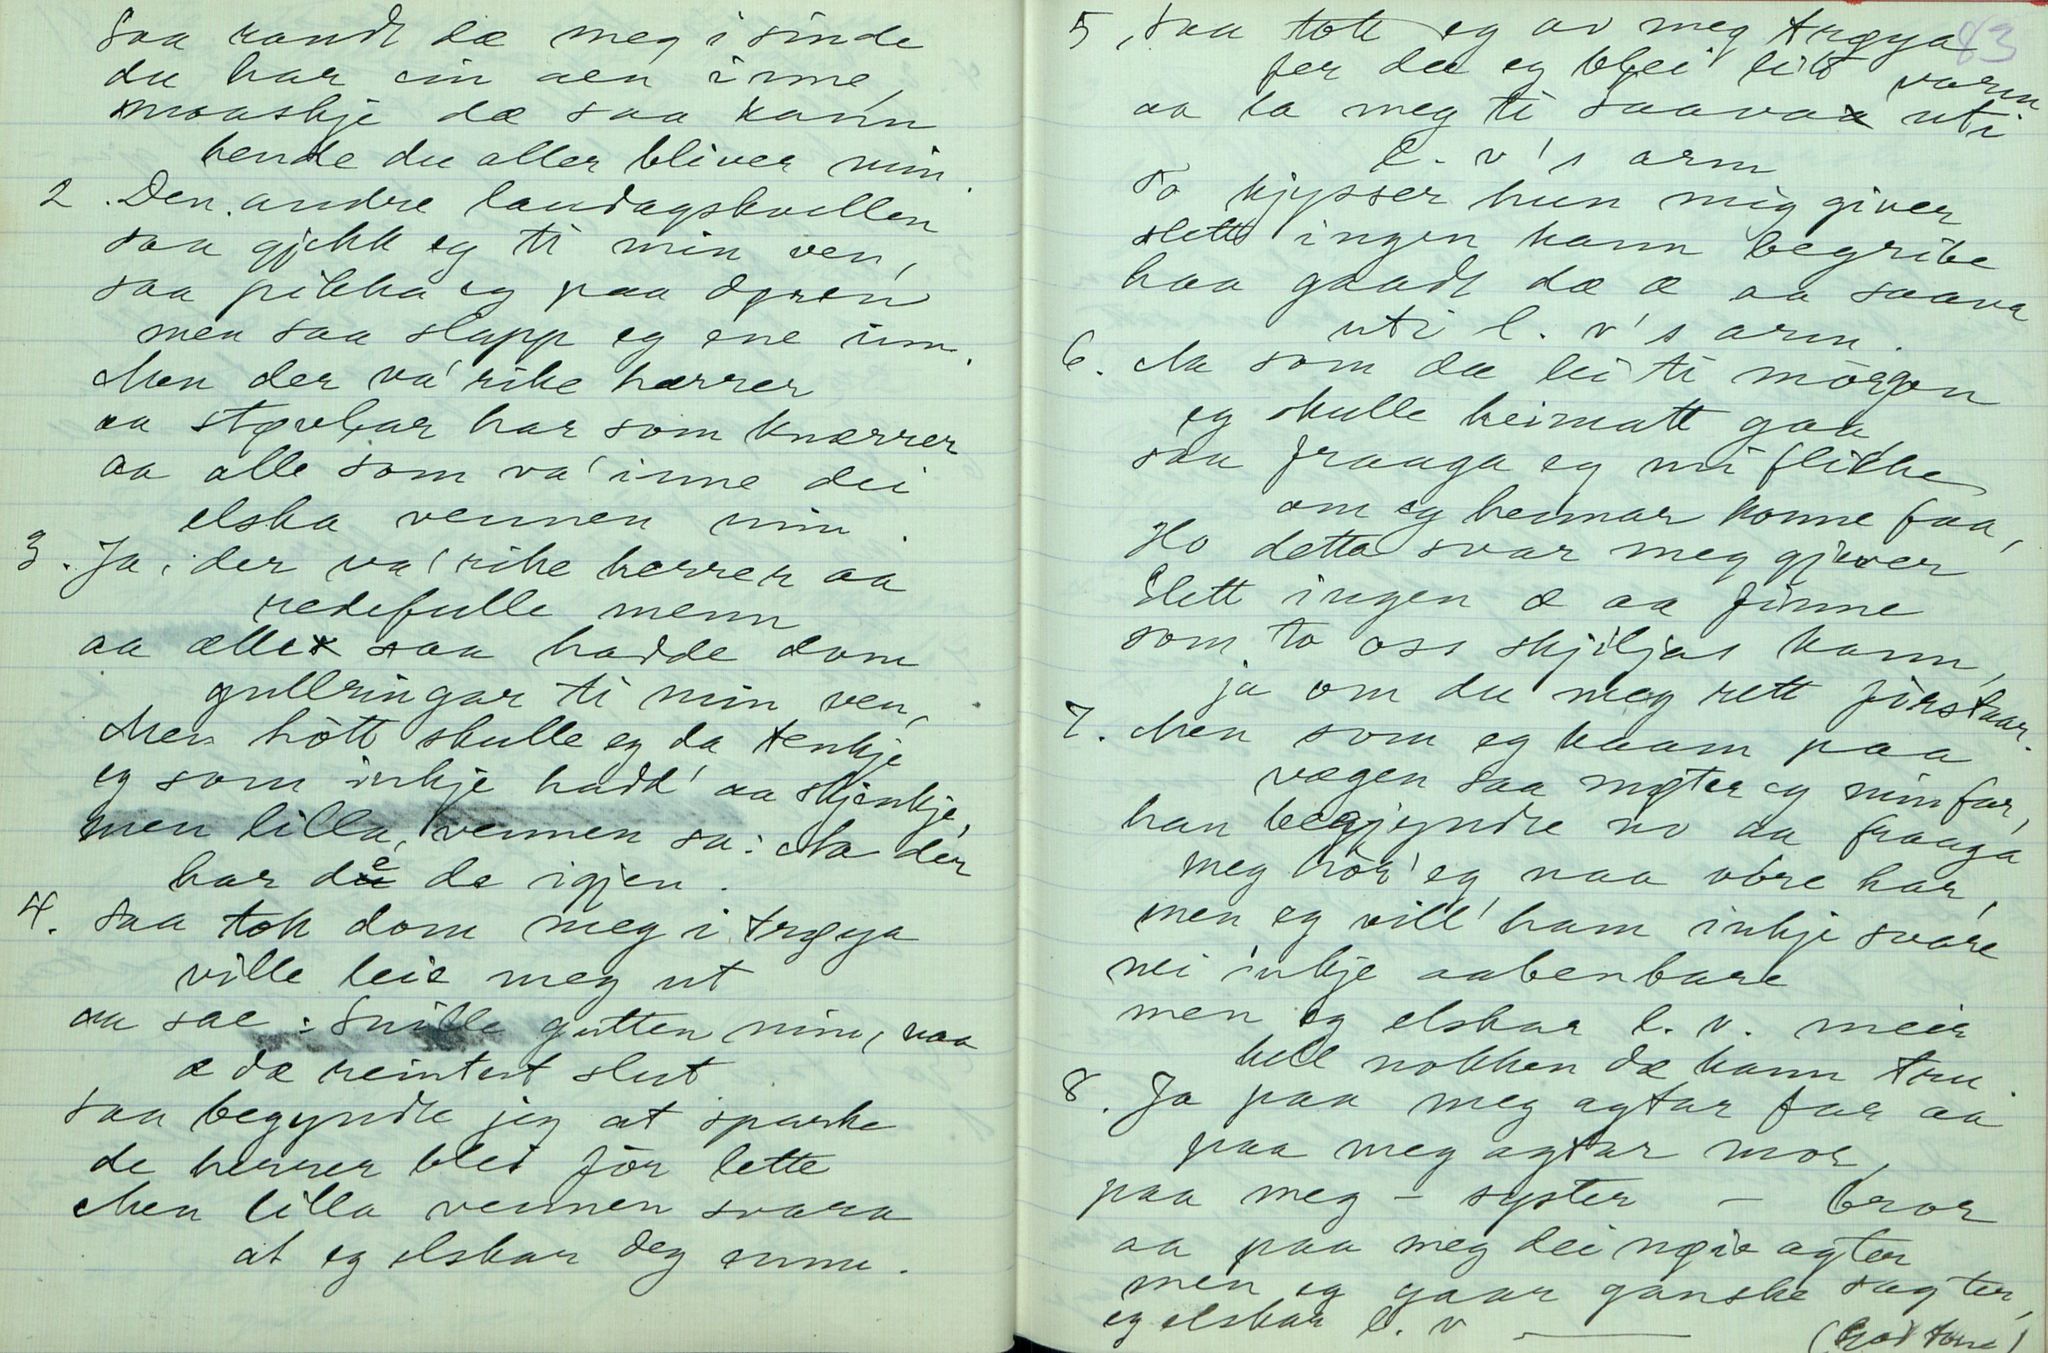 Saa randt dæ meg i sinde
du har ein aen i inne,
maaskje dæ saa kann
hende du aller bliver min.
2. Den andre laudagskvellen
saa gjekk eg ti min ven,
saa pikka eg paa døren
men saa slapp eg ene inn.
Men der va' rike hærrer
aa støvlar har som knærrer
aa alle som va' inne dei
elska vennen min.
3. Ja, der va' rike herrer aa
redefulle menn
aa alle saa hadde dom
gullringar ti min ven,
Men hòtt skulle eg da tenkje
eg som inkje hadd' aa skjenkje,
men lilla vennen sa: Na der
har de de igjen.
4. Saa tok dom meg i trøya
ville leie meg ut
aa sae: Snille gutten min, naa
æ dæ reintut slut
saa begyndte jeg at sparke
de herrer blei før lette
Men lilla vennen svara
at eg elskar deg ennu.
83
5, Saa tok eg av meg trøya
fer dæ eg blei litt varm
aa la meg ti saava uti
l. v's arm
To kjysser hun mig giver
slett ingen kann begribe
haa gaadt dæ æ aa saava
uti l. v's arm.
6. Na som dæ lei ti mørgon
eg skulle heimatt gaa
saa fraaga eg mi flikke
om eg hennar konne faa,
Ho detta svar meg gjiver
Slett ingen æ aa finne
som to oss skjiljas kann,
ja om du meg rett fòrstaar.
7. Men som eg kaam paa
vægen saa møter eg min far,
han begjyndte no aa fraaga
meg hòr' eg naa vøre har,
men eg vill' ham inkje svare
nei inkje aabenbare
men eg elskar l. v. meir
hell nokken dæ kann tru.
8. Ja paa meg agtar far aa
paa meg agtar mor,
paa meg – syster – bror
aa paa meg dei nøie agter
men eg gaar ganske sagter,
eg elskar l. v ———